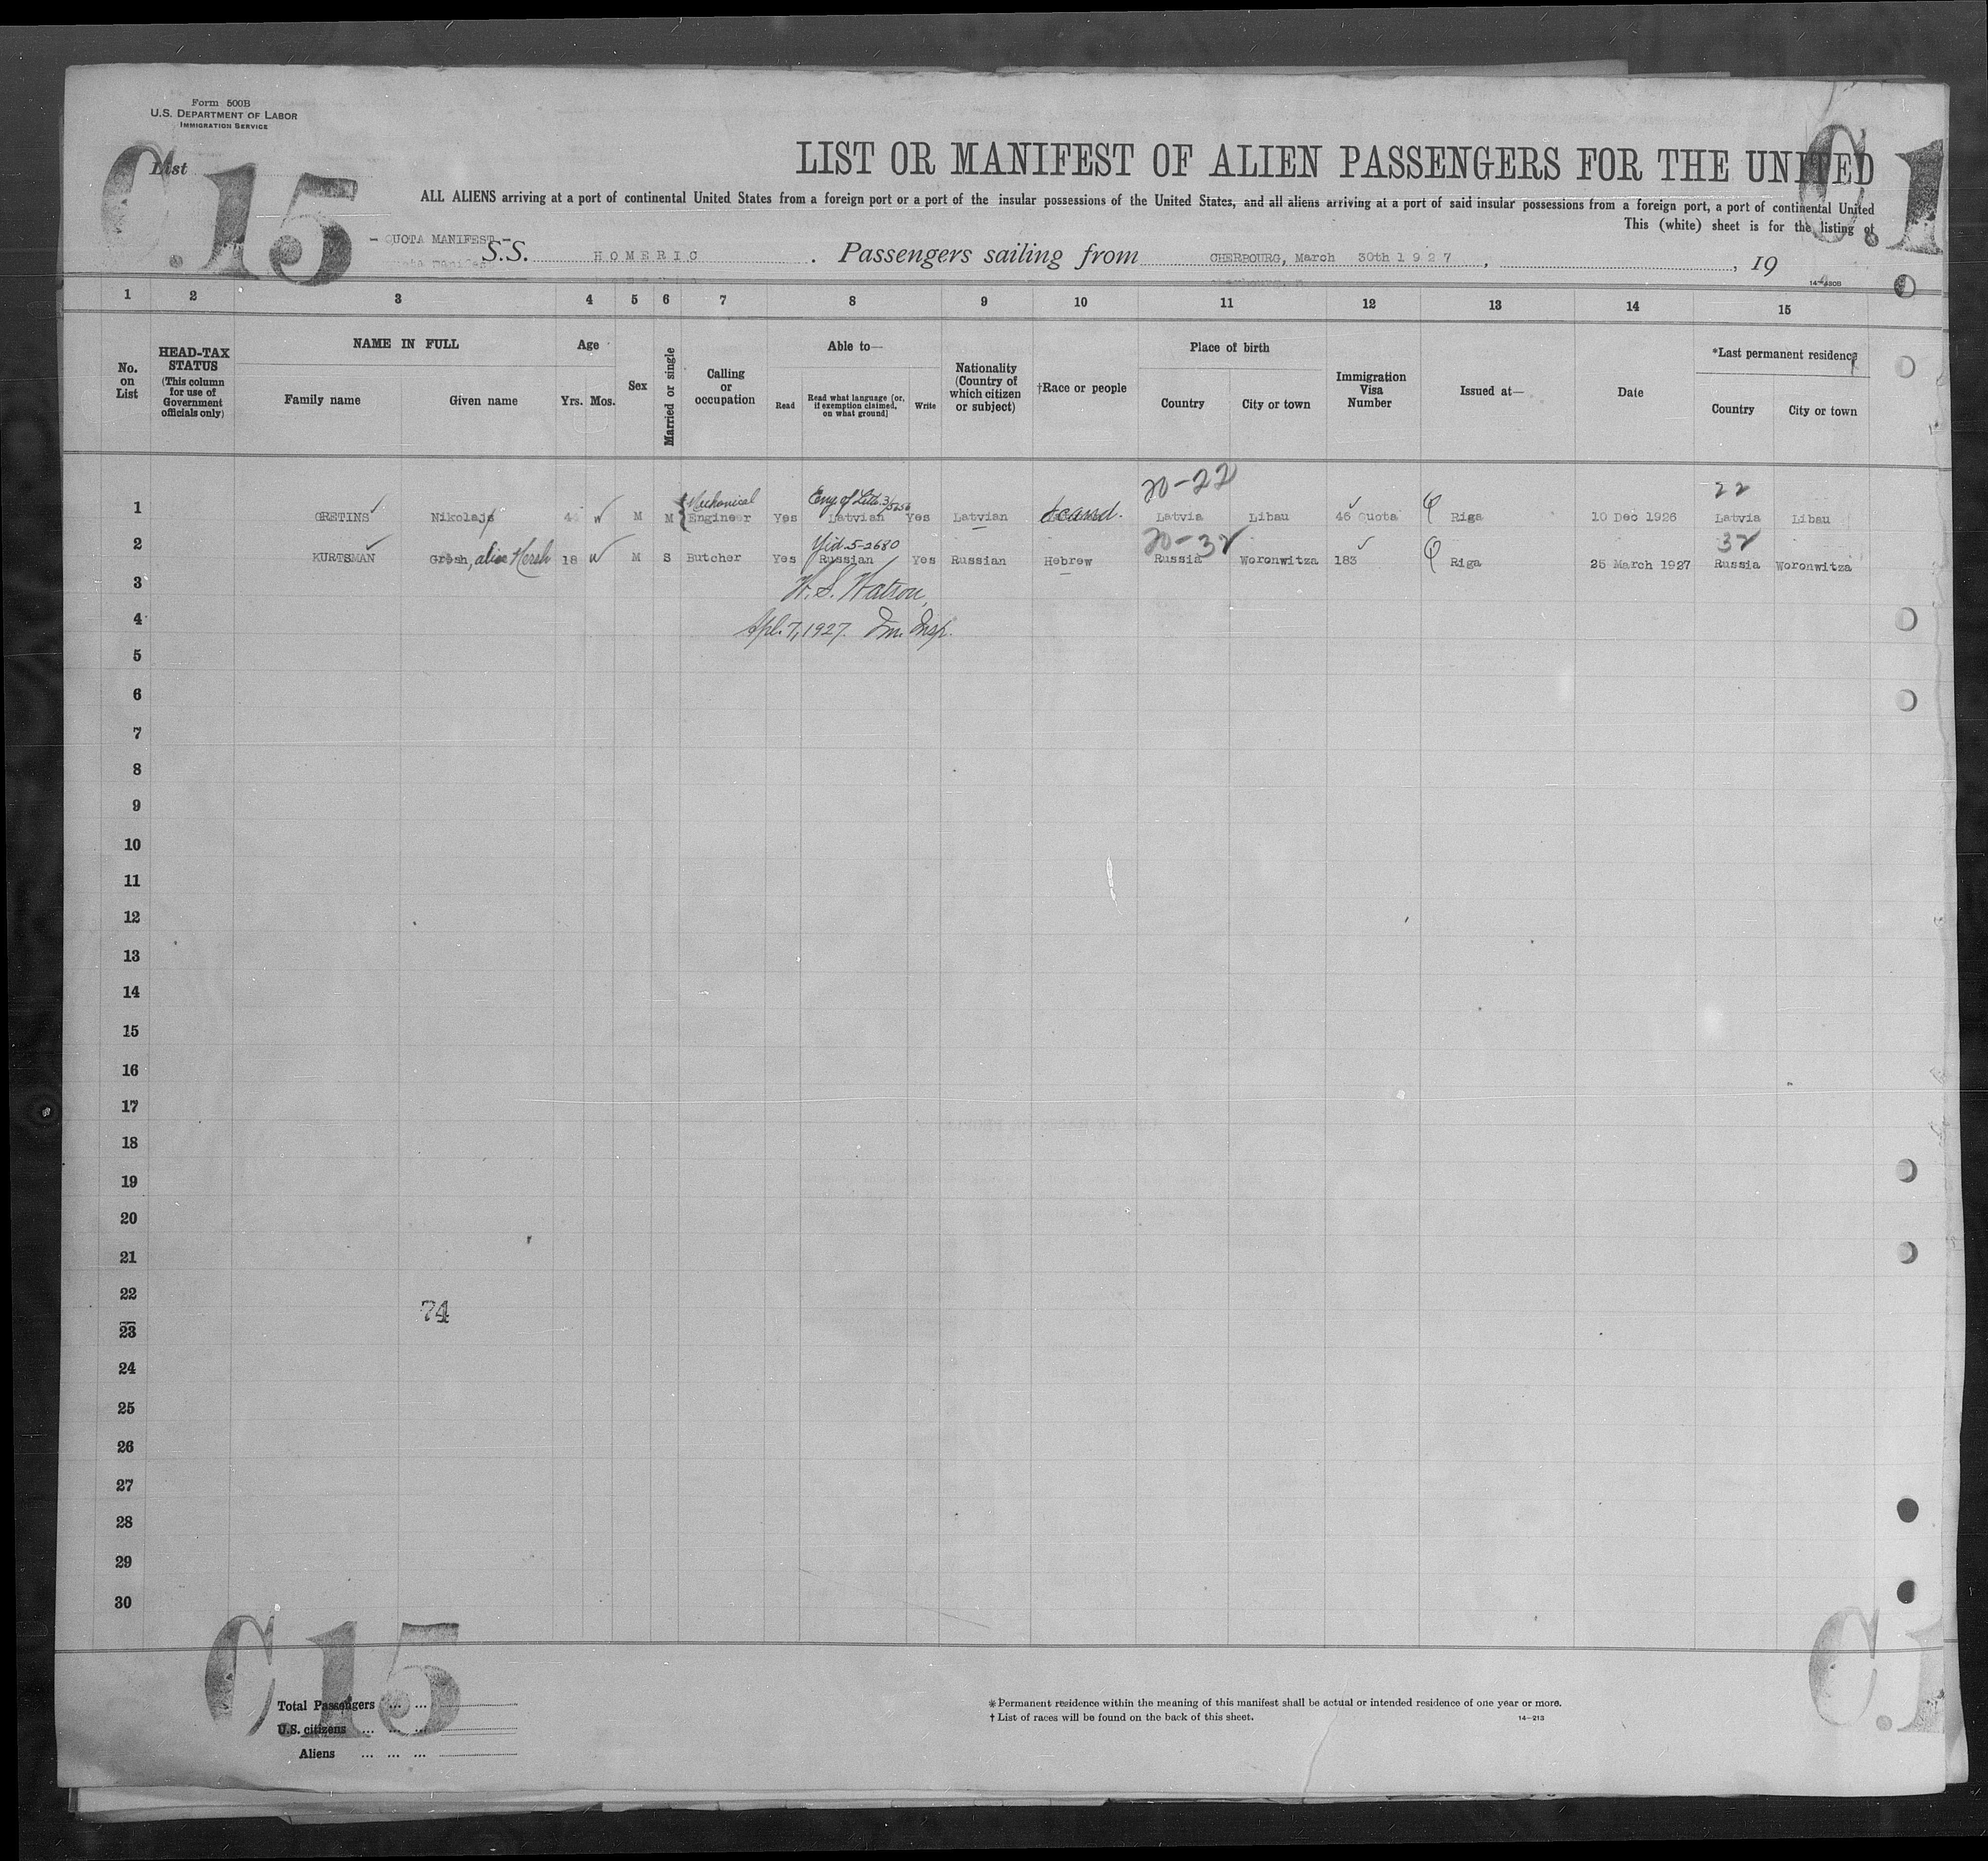 Form 500B
U.S. DEPARTMENT OF LABOR
IMMIGRATION SERVICE
List
C.15
C.1
LIST OR MANIFEST OF ALIEN PASSENGERS FOR THE UNITED
ALL ALIENS arriving at a port of continental United States from a foreign port or a port of the insular possessions of the United States, and all aliens arriving at a port of said insular possessions from a foreign port, a port of continental United
This (white) sheet is for the listing of
- QUOTA MANIFEST -
S.S. HOMERIC . Passengers sailing from CHERBOURG, March 30th 1927, , 19
1 2 3 4 5 6 7 8 9 10 11 12 13 14 15
No. on List
HEAD-TAX STATUS (This column for use of Government officials only)
NAME IN FULL
Family name
Given name
Age
Yrs. Mos.
Sex
Married or single
Calling or occupation
Able to—
Read
Read what language [or, if exemption claimed, on what ground]
Write
Nationality (Country of which citizen or subject)
†Race or people
Place of birth
Country
City or town
Immigration Visa Number
Issued at—
Date
*Last permanent residence
Country
City or town
20-22
22
1 GRETINS Nikolajs 44 M M Mechanical Engineer Yes Latvian Yes Latvian Scand. Latvia Libau 46 Quota Riga 10 Dec 1926 Latvia Libau
Yid 5-2680
20-32
32
2 KURTSMAN Grosh, alias Hersh 18 M S Butcher Yes Russian Yes Russian Hebrew Russia Woronwitza 183 Riga 25 March 1927 Russia Woronwitza
3 W. S. Watson,
4 Apl. 7, 1927. Im. Insp.
5
6
7
8
9
10
11
12
13
14
15
16
17
18
19
20
21
22
74
23
24
25
26
27
28
29
30
C.15
C.1
Total Passengers ... ...
U.S. citizens ... ... ...
Aliens ... ... ...
*Permanent residence within the meaning of this manifest shall be actual or intended residence of one year or more.
† List of races will be found on the back of this sheet.
14—213